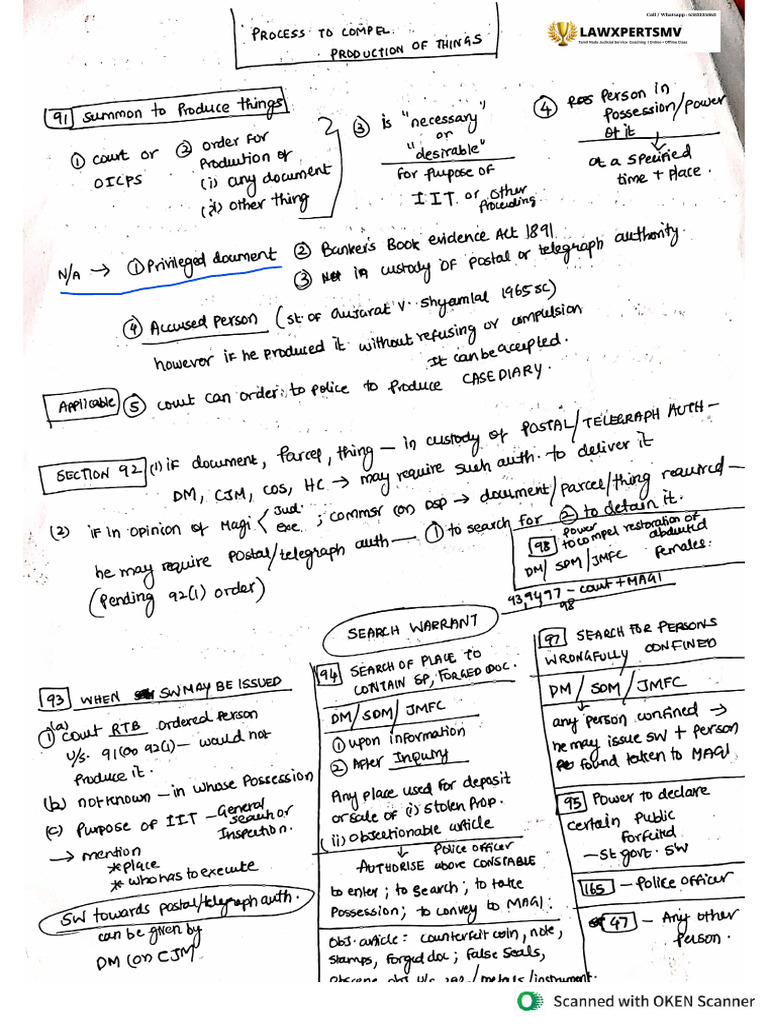 Call / Whatsapp :
LAWXPERTSMV
Tamil Nadu Judicial Service Coaching | Online + Offline Class
PROCESS TO COMPEL
PRODUCTION OF THINGS
91 Summon to Produce things
① court or
OICPS
② order for
Production of
(i) any document
(ii) other thing
③ is "necessary"
or
"desirable"
for Purpose of
I I T or other
Proceeding
④ Person in
Possession/power
of it
at a specified
time + place.
N/A → ① Privileged document ② Banker's Book evidence Act 1891
③ in custody of postal or telegraph authority.
④ Accused Person (st. of Gujarat v. Shyamlal 1965 SC)
however if he produced it without refusing or compulsion
It can be accepted.
Applicable ⑤ court can order to police to Produce CASE DIARY.
SECTION 92 (1) if document, Parcel, thing — in custody of POSTAL/TELEGRAPH AUTH —
DM, CJM, COS, HC → may require such auth. to deliver it
(2) if in opinion of Magi < Jud. Exe. ; commsr (or) DSP → document/parcel/thing required —
he may require postal/telegraph auth — ① to search for ② to detain it.
(Pending 92(1) order)
98 power
to compel restoration of
abducted
females.
DM/ SDM/ JMFC
93, 94, 97 – court + MAGI
98
SEARCH WARRANT
93 WHEN SW MAY BE ISSUED
(a)
① court RTB ordered person
u/s. 91 (or) 92(1) — would not
produce it.
(b) not known — in whose Possession
(c) Purpose of I I T — General
search or
Inspection.
→ mention
* place
* who has to execute
SW towards postal/telegraph auth.
can be given by
DM (or) CJM
94 SEARCH OF PLACE TO
CONTAIN SP, FORGED DOC.
DM/ SDM/ JMFC
① upon information
② After Inquiry
Any place used for deposit
or sale of (i) stolen Prop.
(ii) objectionable article
Police officer
AUTHORISE above CONSTABLE
to enter; to search; to take
Possession; to convey to MAGI.
Obj. article: counterfeit coin, note,
stamps, forged doc; false seals,
obscene obj u/s 292 / metals/instrument.
97 SEARCH FOR PERSONS
WRONGFULLY CONFINED
DM/ SDM/ JMFC
any person confined →
he may issue SW + person
found taken to MAGI
95 Power to declare
certain Public
forfeited
– St govt. SW
165 – Police officer
47 – Any other
Person.
Scanned with OKEN Scanner